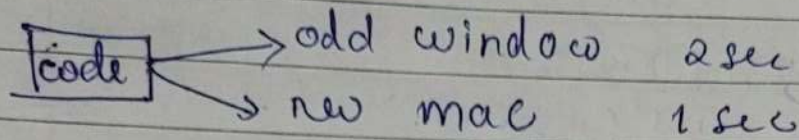 code
odd window 2 sec
new mac 1 sec